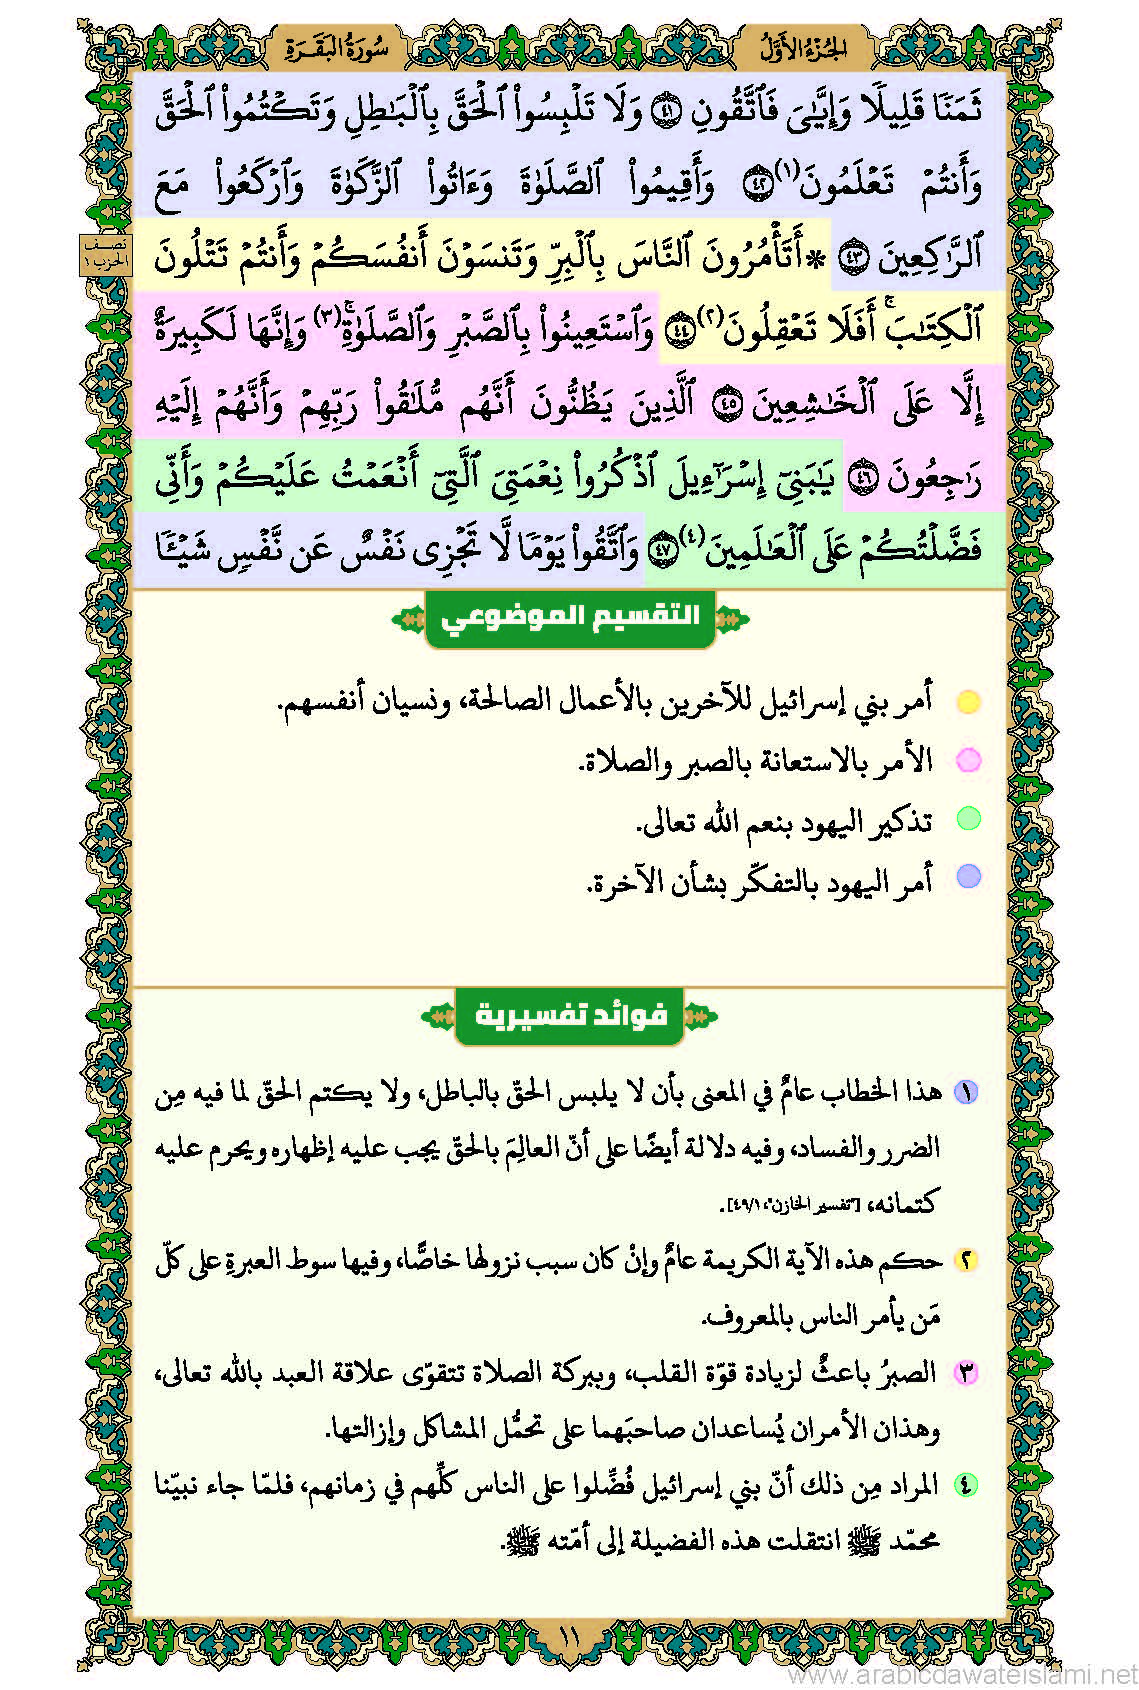 الجُزْءُ الأَوَّلُ
سُورَةُ البَقَرَةِ
ثَمَنٗا قَلِيلٗا وَإِيَّٰيَ فَٱتَّقُونِ ٤١ وَلَا تَلۡبِسُواْ ٱلۡحَقَّ بِٱلۡبَٰطِلِ وَتَكۡتُمُواْ ٱلۡحَقَّ
وَأَنتُمۡ تَعۡلَمُونَ(١) ٤٢ وَأَقِيمُواْ ٱلصَّلَوٰةَ وَءَاتُواْ ٱلزَّكَوٰةَ وَٱرۡكَعُواْ مَعَ
ٱلرَّٰكِعِينَ ٤٣ ۞ أَتَأۡمُرُونَ ٱلنَّاسَ بِٱلۡبِرِّ وَتَنسَوۡنَ أَنفُسَكُمۡ وَأَنتُمۡ تَتۡلُونَ
نصف
الحزب ١
ٱلۡكِتَٰبَۚ أَفَلَا تَعۡقِلُونَ(٢) ٤٤ وَٱسۡتَعِينُواْ بِٱلصَّبۡرِ وَٱلصَّلَوٰةِۚ(٣) وَإِنَّهَا لَكَبِيرَةٌ
إِلَّا عَلَى ٱلۡخَٰشِعِينَ ٤٥ ٱلَّذِينَ يَظُنُّونَ أَنَّهُم مُّلَٰقُواْ رَبِّهِمۡ وَأَنَّهُمۡ إِلَيۡهِ
رَٰجِعُونَ ٤٦ يَٰبَنِيٓ إِسۡرَٰٓءِيلَ ٱذۡكُرُواْ نِعۡمَتِيَ ٱلَّتِيٓ أَنۡعَمۡتُ عَلَيۡكُمۡ وَأَنِّي
فَضَّلۡتُكُمۡ عَلَى ٱلۡعَٰلَمِينَ(٤) ٤٧ وَٱتَّقُواْ يَوۡمٗا لَّا تَجۡزِي نَفۡسٌ عَن نَّفۡسٖ شَيۡـٔٗا
التقسيم الموضوعي
أمر بني إسرائيل للآخرين بالأعمال الصالحة، ونسيان أنفسهم.
الأمر بالاستعانة بالصبر والصلاة.
تذكير اليهود بنعم الله تعالى.
أمر اليهود بالتفكّر بشأن الآخرة.
فوائد تفسيرية
١ هذا الخطاب عامٌّ في المعنى بأن لا يلبس الحقّ بالباطل، ولا يكتم الحقّ لما فيه مِن
الضرر والفساد، وفيه دلالة أيضًا على أنّ العالِمَ بالحقّ يجب عليه إظهاره ويحرم عليه
كتمانه، ["تفسير الخازن"، ٤٩/١].
٢ حكم هذه الآية الكريمة عامٌّ وإنْ كان سبب نزولها خاصًّا، وفيها سوط العبرةِ على كلّ
مَن يأمر الناس بالمعروف.
٣ الصبرُ باعثٌ لزيادة قوّة القلب، وببركة الصلاة تتقوّى علاقة العبد بالله تعالى،
وهذان الأمران يُساعدان صاحبَهما على تحمُّل المشاكل وإزالتها.
٤ المراد مِن ذلك أنّ بني إسرائيل فُضِّلوا على الناس كلِّهم في زمانهم، فلمّا جاء نبيّنا
محمّد ﷺ انتقلت هذه الفضيلة إلى أمّته ﷺ.
١١
www.arabicdawateislami.net